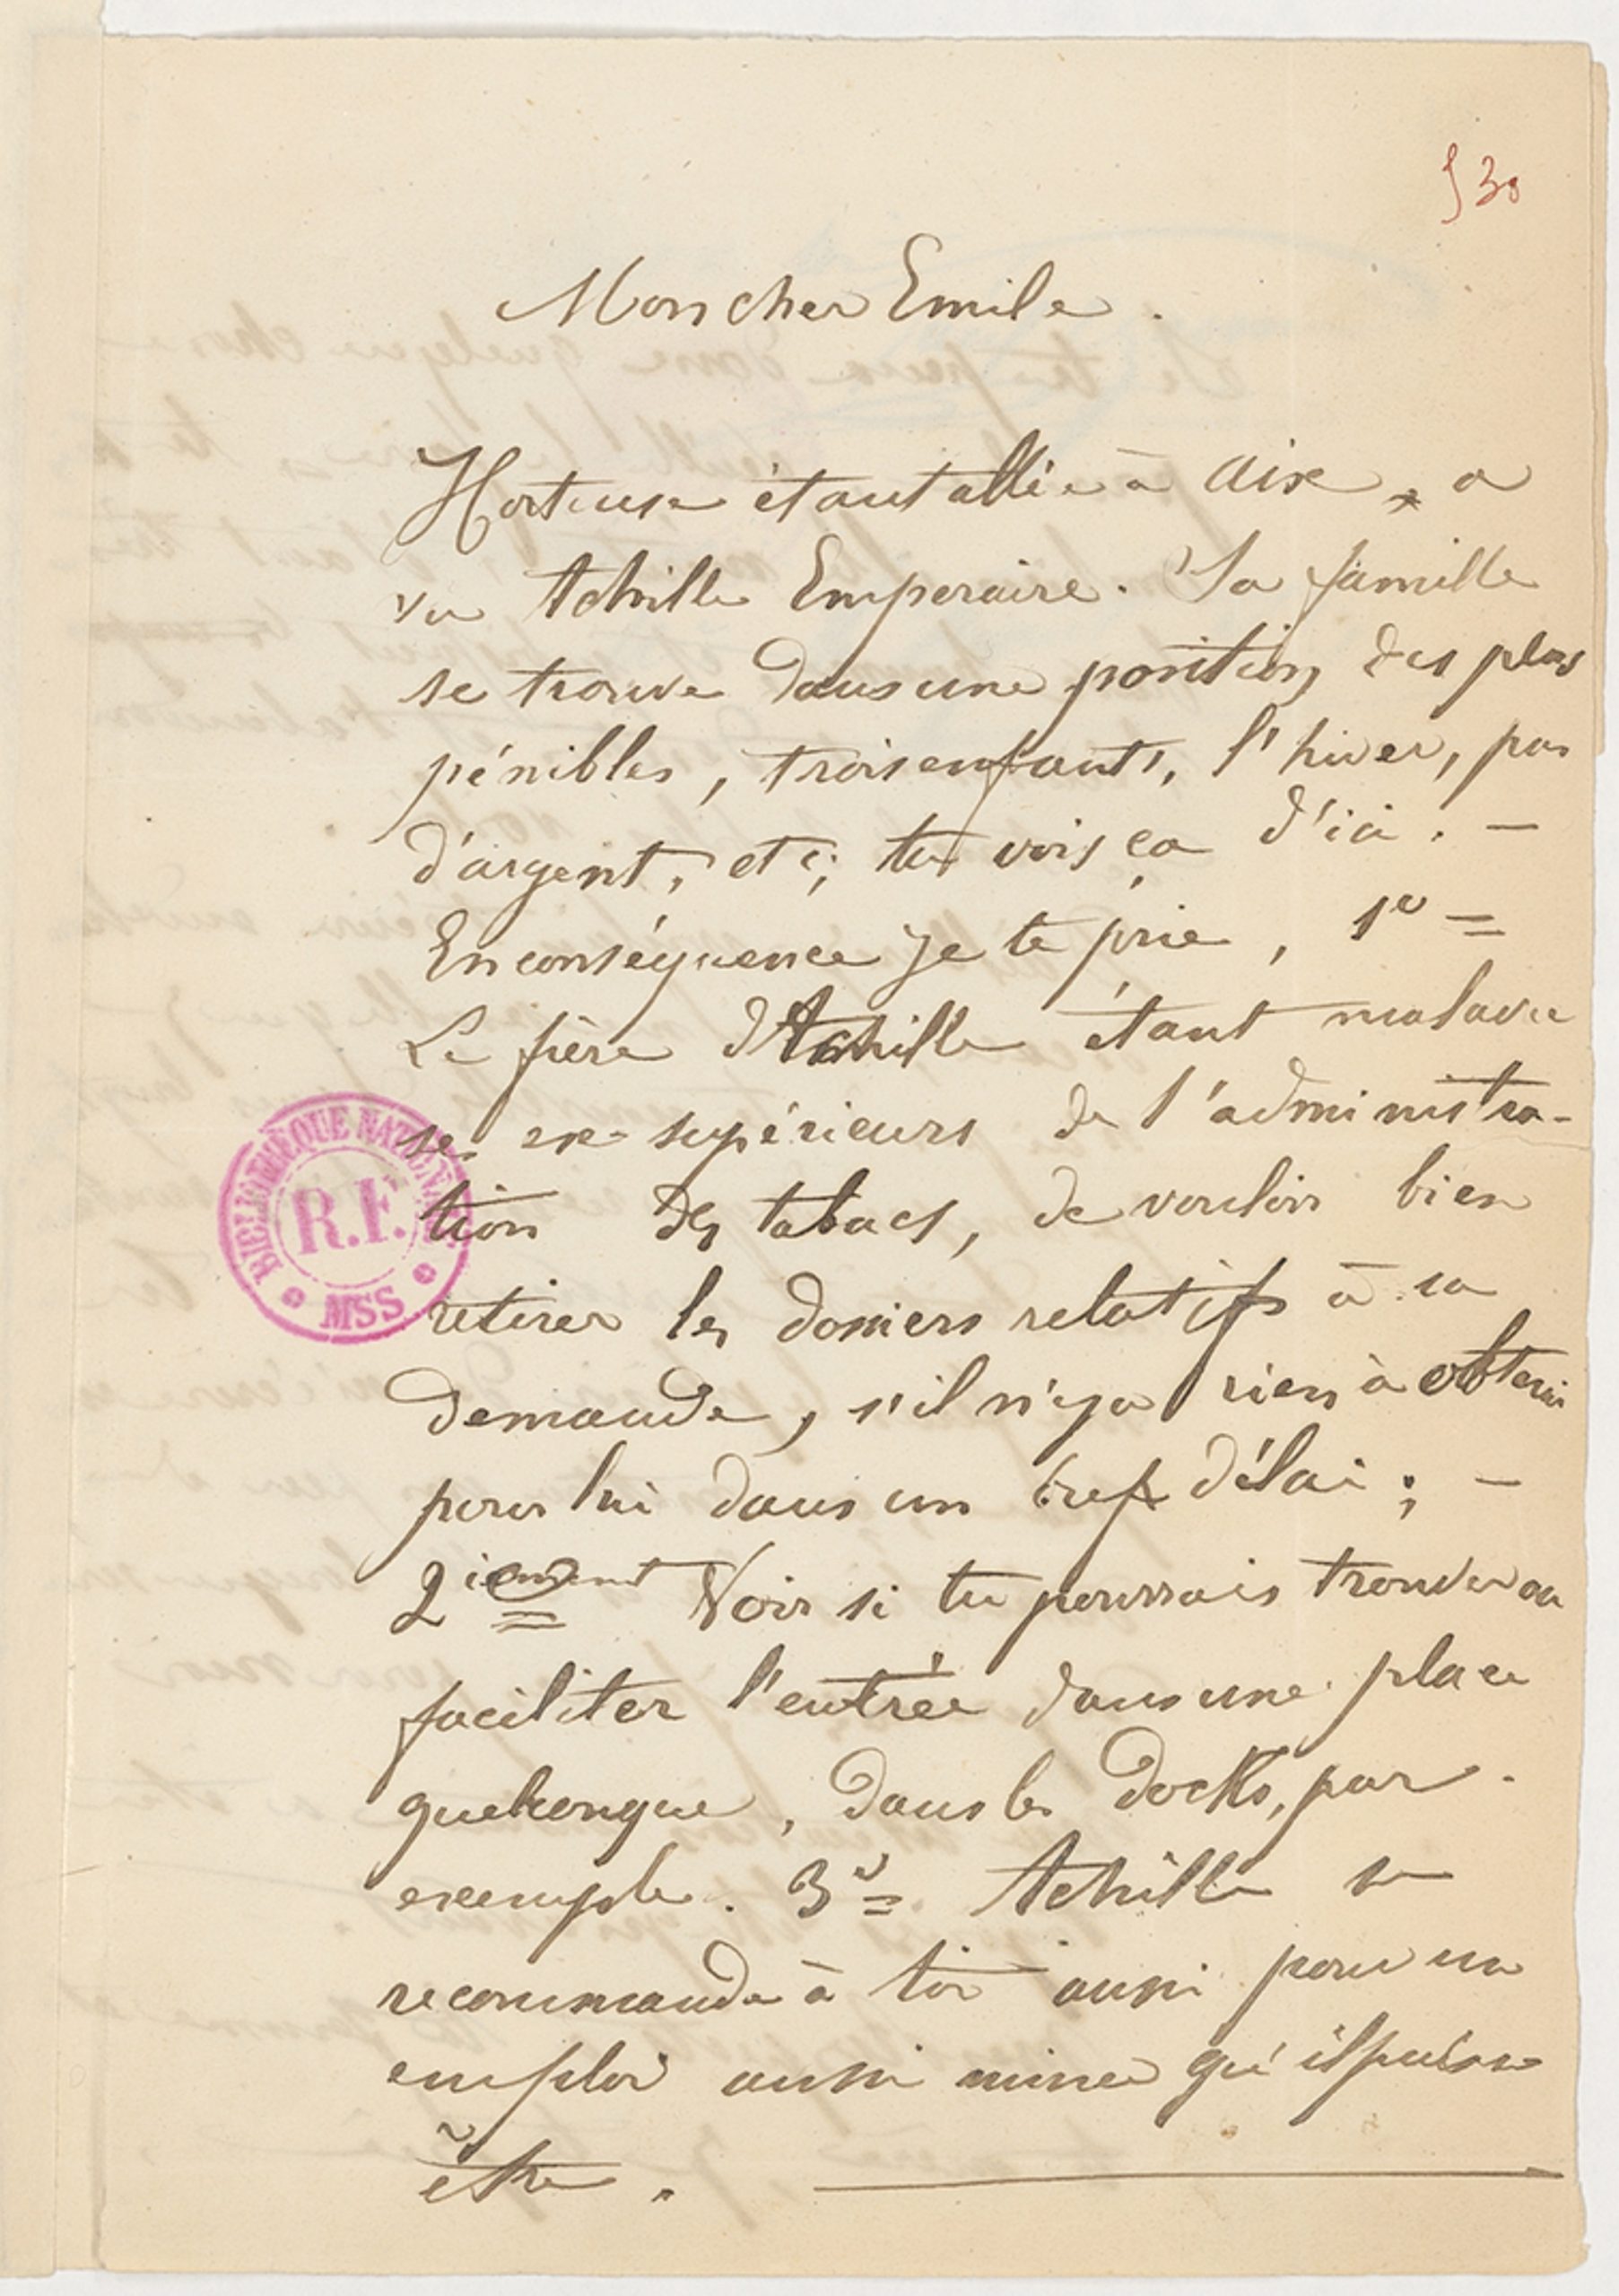 530
Mon cher Emile.
Hortense étant allée à Aix, a
vu Achille Emperaire. Sa famille
se trouve dans une position des plus
pénibles, trois enfants, l'hiver, pas
d'argent, etc; tu vois ça d'ici. —
En conséquence je te prie, 1e =
Le frère d'Achille étant mal avec
ses ex-supérieurs de l'administra-
tion des tabacs, de vouloir bien
retirer les dossiers relatifs à sa
demande, s'il n'y a rien à obtenir
pour lui dans un bref délai; —
2iement Voir si tu pourrais trouver ou
faciliter l'entrée dans une place
quelconque, dans les docks, par
exemple. 3e = Achille se
recommande à toi aussi pour un
emploi aussi mince qu'il puisse
être.
BIBLIOTHÈQUE NATIONALE
R.F.
MSS